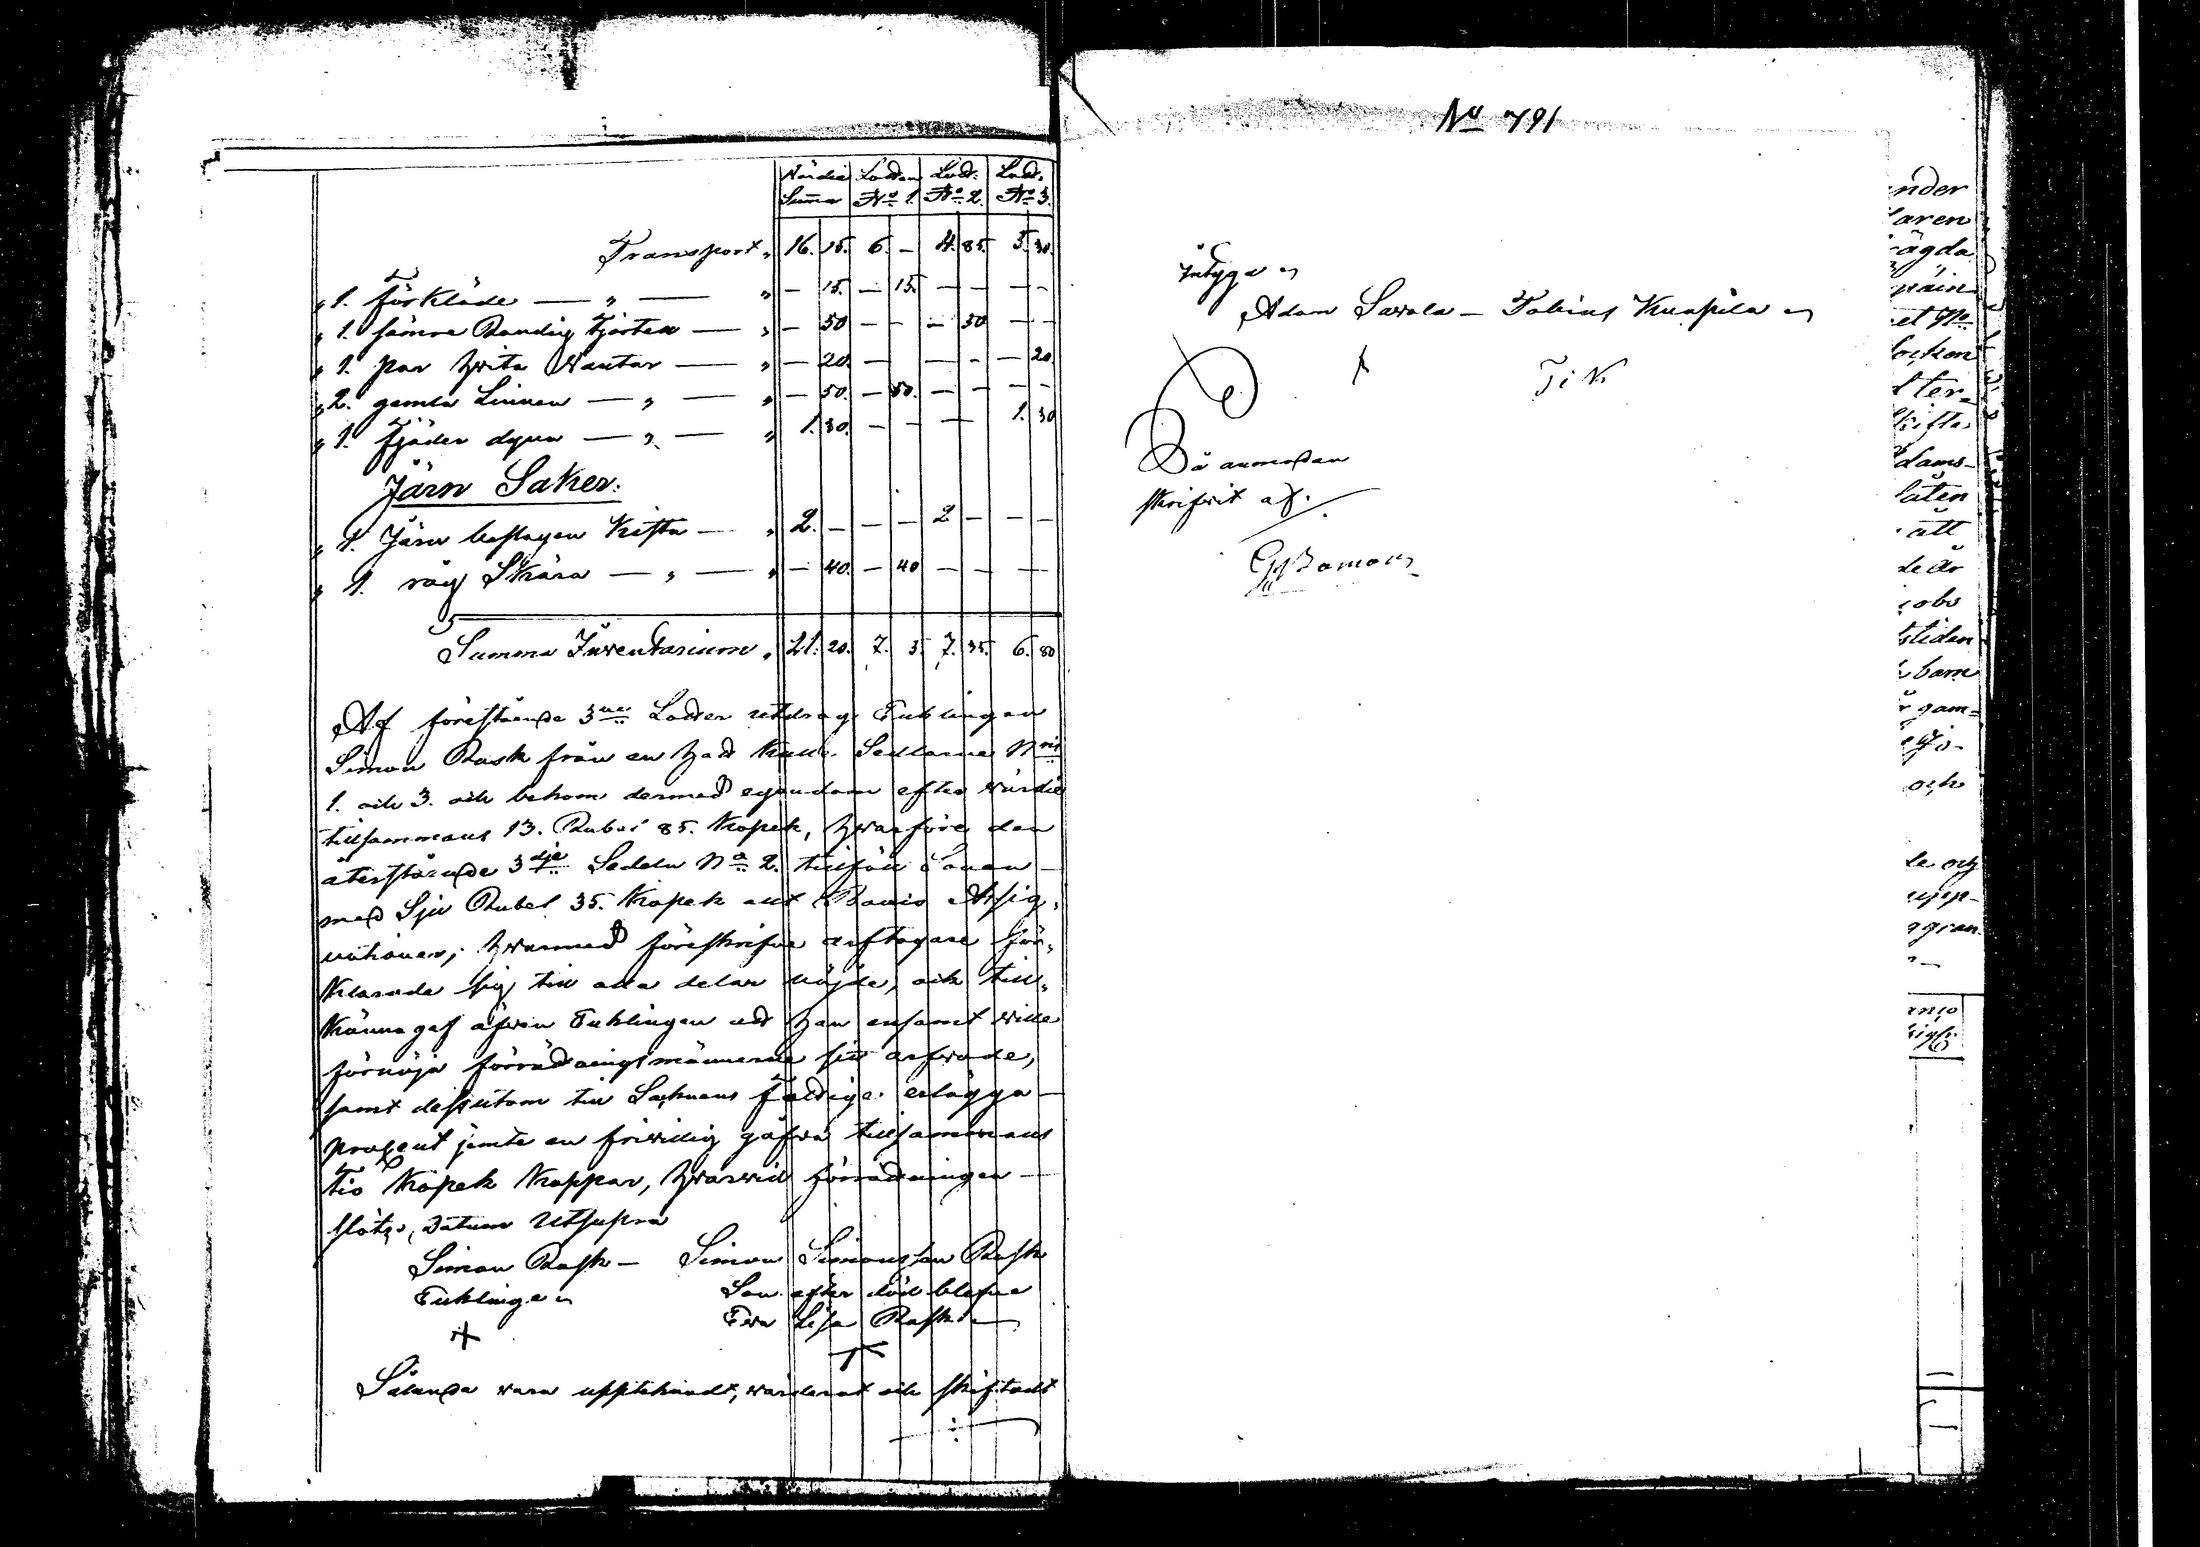 Wärdie Lodden Lodd. Lodd.
Summa No 1. No 2. No 3.
Transport „ 16. 15. 6. – 4. 85. 5. 30.
„ 1. förkläde — „ — „ – 15. – 15. – – – –
„ 1. sämre Randig Kjortel — „ – 50 – – – 50 – –
„ 1. par hwita Wantar — „ – 20. – – – – 20.
„ 2. gamla Linnen — „ — „ – 50. – 50. – – – –
„ 1. fjäder dyna — „ — „ 1. 30. – – – 1. 30
Järn Saker.
„ 1. Järn beslagen Kista — „ 2. – – – 2 – – –
„ 1. råg Skära — „ — „ – 40. – 40 – – –
Summa Inventarium „ 21. 20. 7. 5. 7. 35. 6. 80
Af förestående 3ne Lodder utdrog Enklingen
Simon Rask från en hatt Sedlarne Nris
1. och 3. och bekom dermed egendom efter wärdie
tillsammans 13. Rubel 85. Kopek, hwarföre den
återstående 3dje Sedeln No 2. tillföll Sonen
med Sju Rubel 35. Kopek allt Banco Assig-
nationer; hwarmed föreskrifne arftagare för-
klarade sig till alla delar nöjde, och till-
känna gaf äfwen Enklingen att han ensamt wille
förnöja förrättningsmännerne sitt arfwode,
samt dessutom till Socknens Fattige erlägga
procent jemte en friwillig gåfwa tillsammans
Tio Kopek Koppar, hwarwid förrättningen
slöts, Datum Utsupra
Simon Rask – Simon Simonsson Rask
Enklingen Son efter död blefne
Ewa Lisa Rask
Sålunda wara upptecknadt, wärderat och skiftadt
No 791
intyga
Adam Sawola – Tobias Knapila
T i K
På anmodan
skrifwit af.
nder
laren
ägda
päin
et No
locken
ter-
skifta
dams-
låten
att
de År
cobs
stiden
barn
gam-
och
de och
upp-
ggran